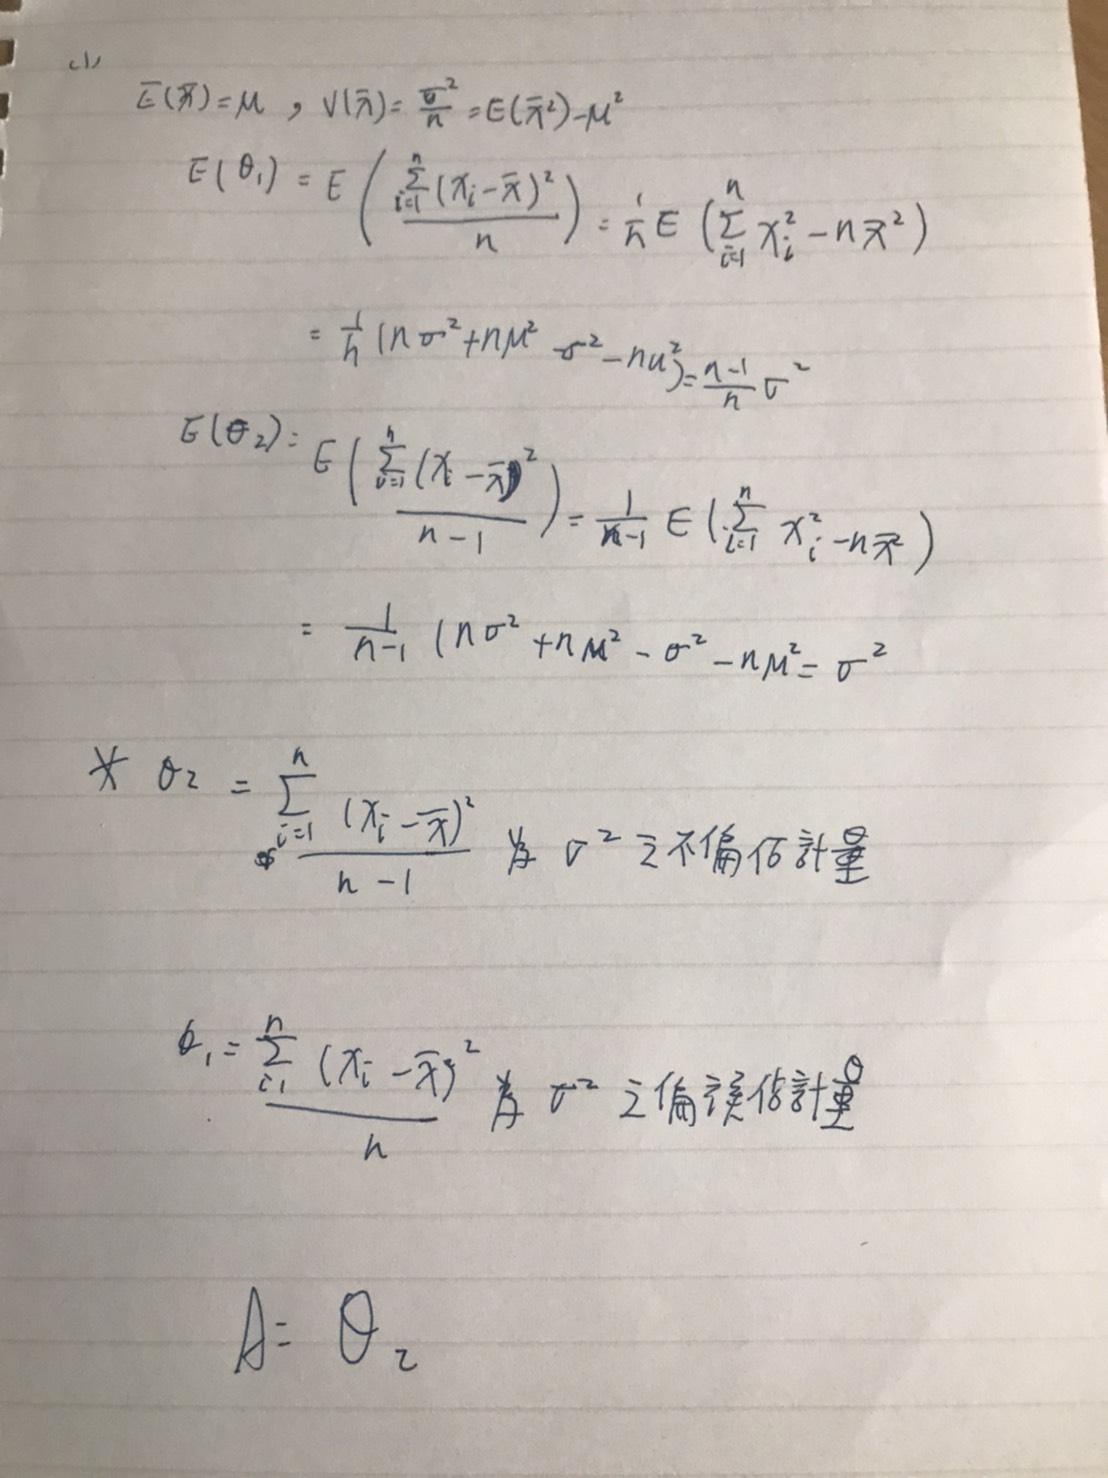 (1)
E(x̄)=μ , V(x̄)= σ²/n =E(x̄²)-μ²
E(θ₁) = E ( Σᵢ₌₁ⁿ (xᵢ-x̄)² / n ) = 1/n E ( Σᵢ₌₁ⁿ xᵢ² - n x̄² )
= 1/n (nσ²+nμ² σ²-nu²)= n-1/n σ²
E(θ₂)= E ( Σᵢ₌₁ⁿ (xᵢ-x̄)² / n-1 ) = 1/n-1 E ( Σᵢ₌₁ⁿ xᵢ² - n x̄² )
= 1/n-1 (nσ² + nμ² - σ² - nμ² = σ²
* θ₂ = Σᵢ₌₁ⁿ (xᵢ-x̄)² / n-1 為 σ² 之不偏估計量
θ₁ = Σᵢ₌₁ⁿ (xᵢ-x̄)² / n 為 σ² 之偏誤估計量
A= θ₂